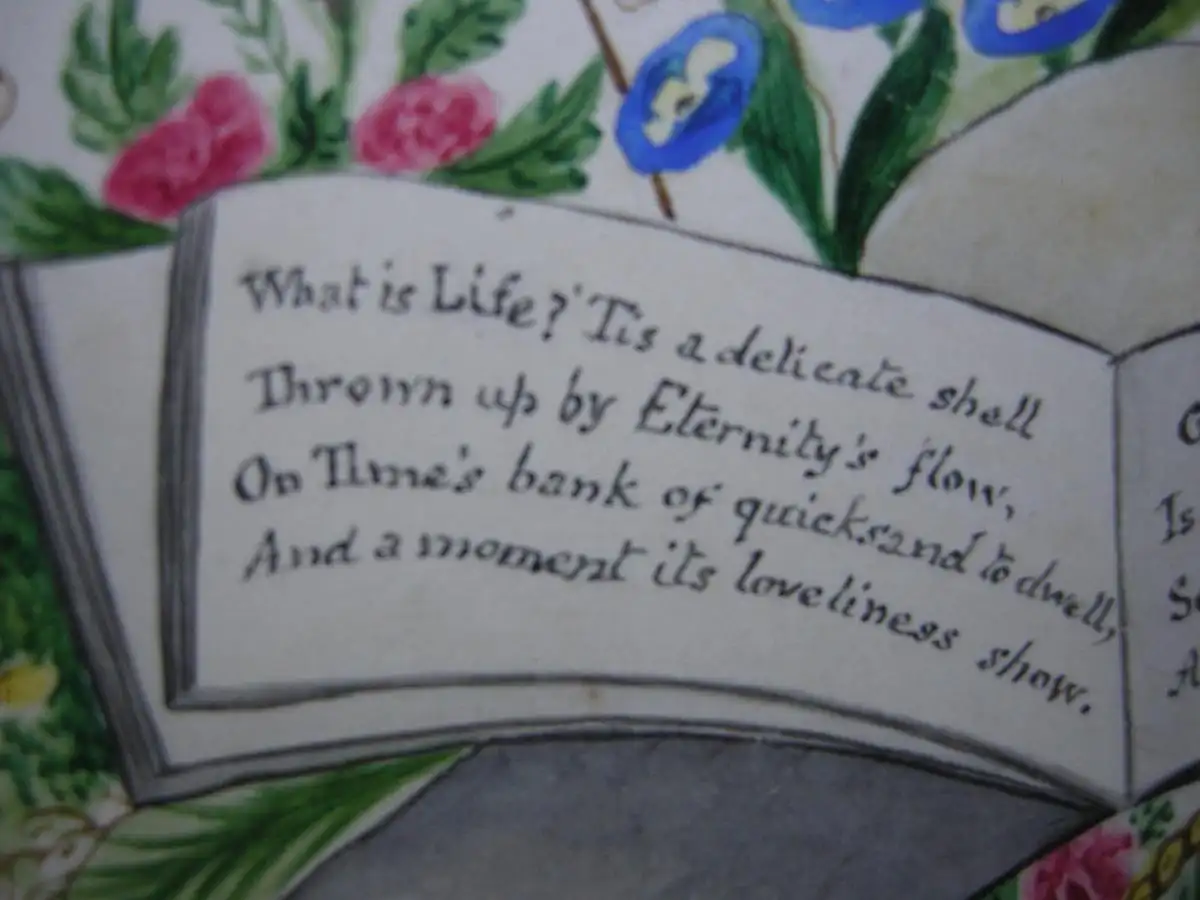 What is Life? 'Tis a delicate shell
Thrown up by Eternity's flow,
On Time's bank of quicksand to dwell,
And a moment its loveliness show.
Is